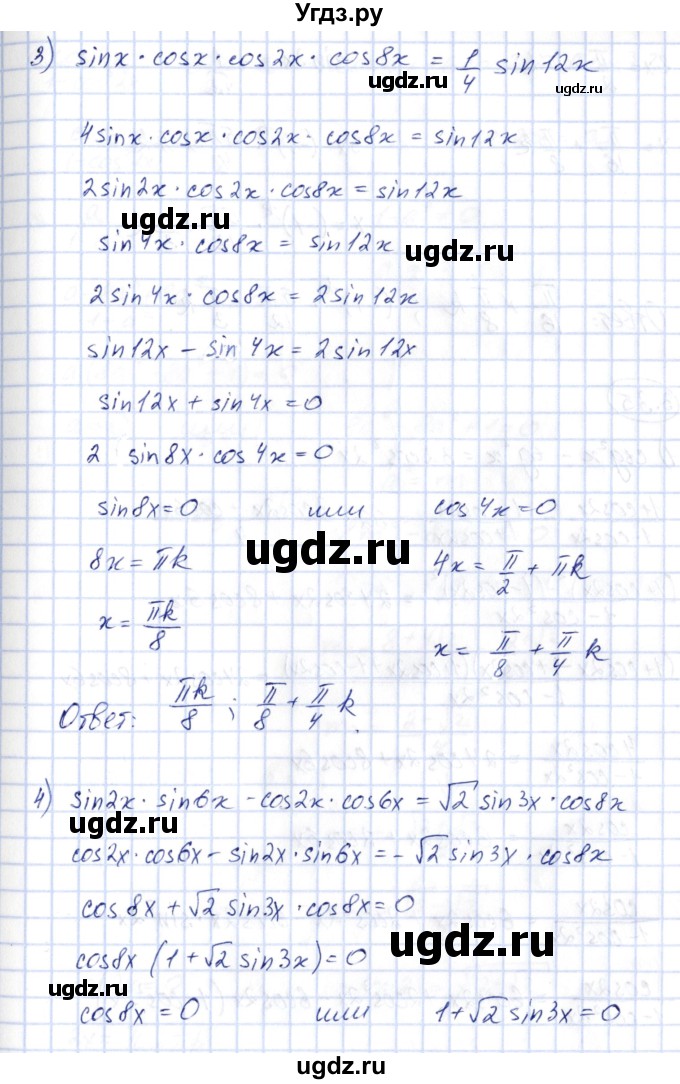 Угдз.ру
3) sinx · cosx · cos2x · cos8x = 1/4 sin12x
ugdz.ru
ugdz.ru
4sinx · cosx · cos2x · cos8x = sin12x
2sin2x · cos2x · cos8x = sin12x
ugdz.ru
ugdz.ru
sin4x · cos8x = sin12x
2sin4x · cos8x = 2sin12x
sin12x − sin4x = 2sin12x
sin12x + sin4x = 0
2 sin8x · cos4x = 0
sin8x = 0 или cos4x = 0
ugdz.ru
8x = πk 4x = π/2 + πk
x = πk/8 x = π/8 + π/4 k
Ответ: πk/8 ; π/8 + π/4 k.
4) sin2x · sin6x − cos2x · cos6x = √2 sin3x · cos8x
ugdz.ru
cos2x · cos6x − sin2x · sin6x = −√2 sin3x · cos8x
cos8x + √2 sin3x · cos8x = 0
ugdz.ru
cos8x (1 + √2 sin3x) = 0
ugdz.ru
cos8x = 0 или 1 + √2 sin3x = 0
ugdz.ru